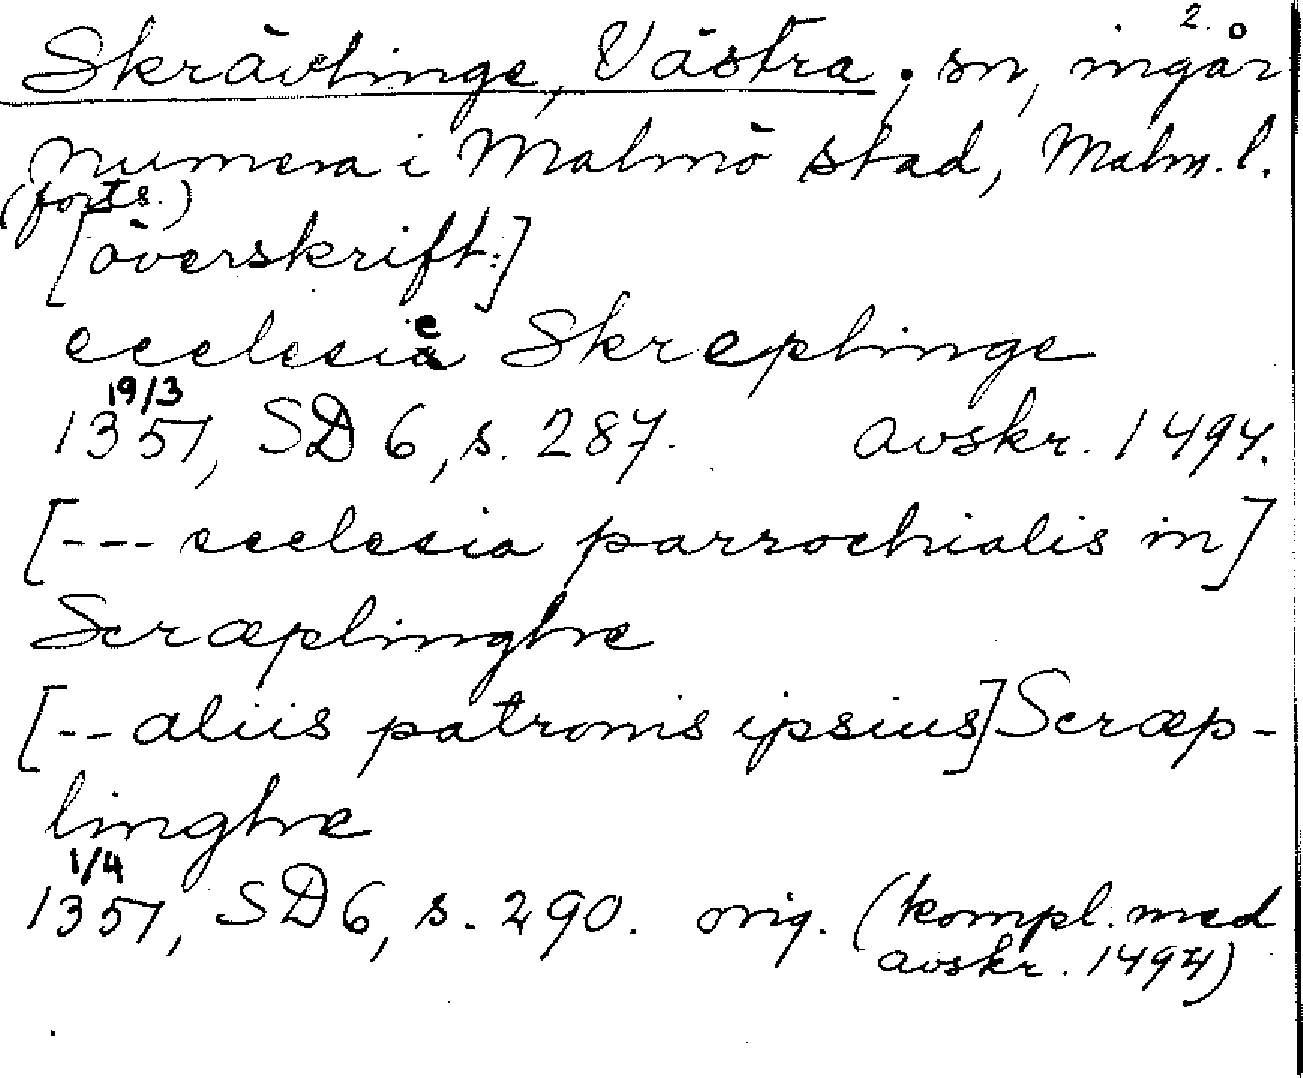 2.
Skrävlinge, Västra, sn, ingår
numera i Malmö stad, Malm. l.
(forts.)
[överskrift:]
ecclesie Skreplinge
19/3
1351, SD 6, s. 287. avskr. 1494.
[--- ecclesia parrochialis in]
Scræplinghe
[-- aliis patronis ipsius] Scræp-
linghe
1/4
1351, SD 6, s. 290. orig. (kompl. med
avskr. 1494)